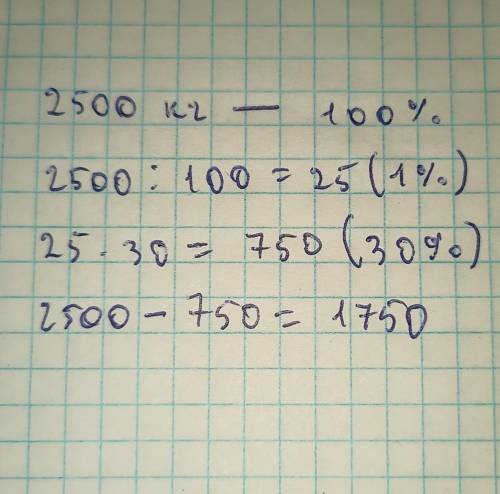 2500 кг — 100%
2500 : 100 = 25 (1%)
25 · 30 = 750 (30%)
2500 - 750 = 1750